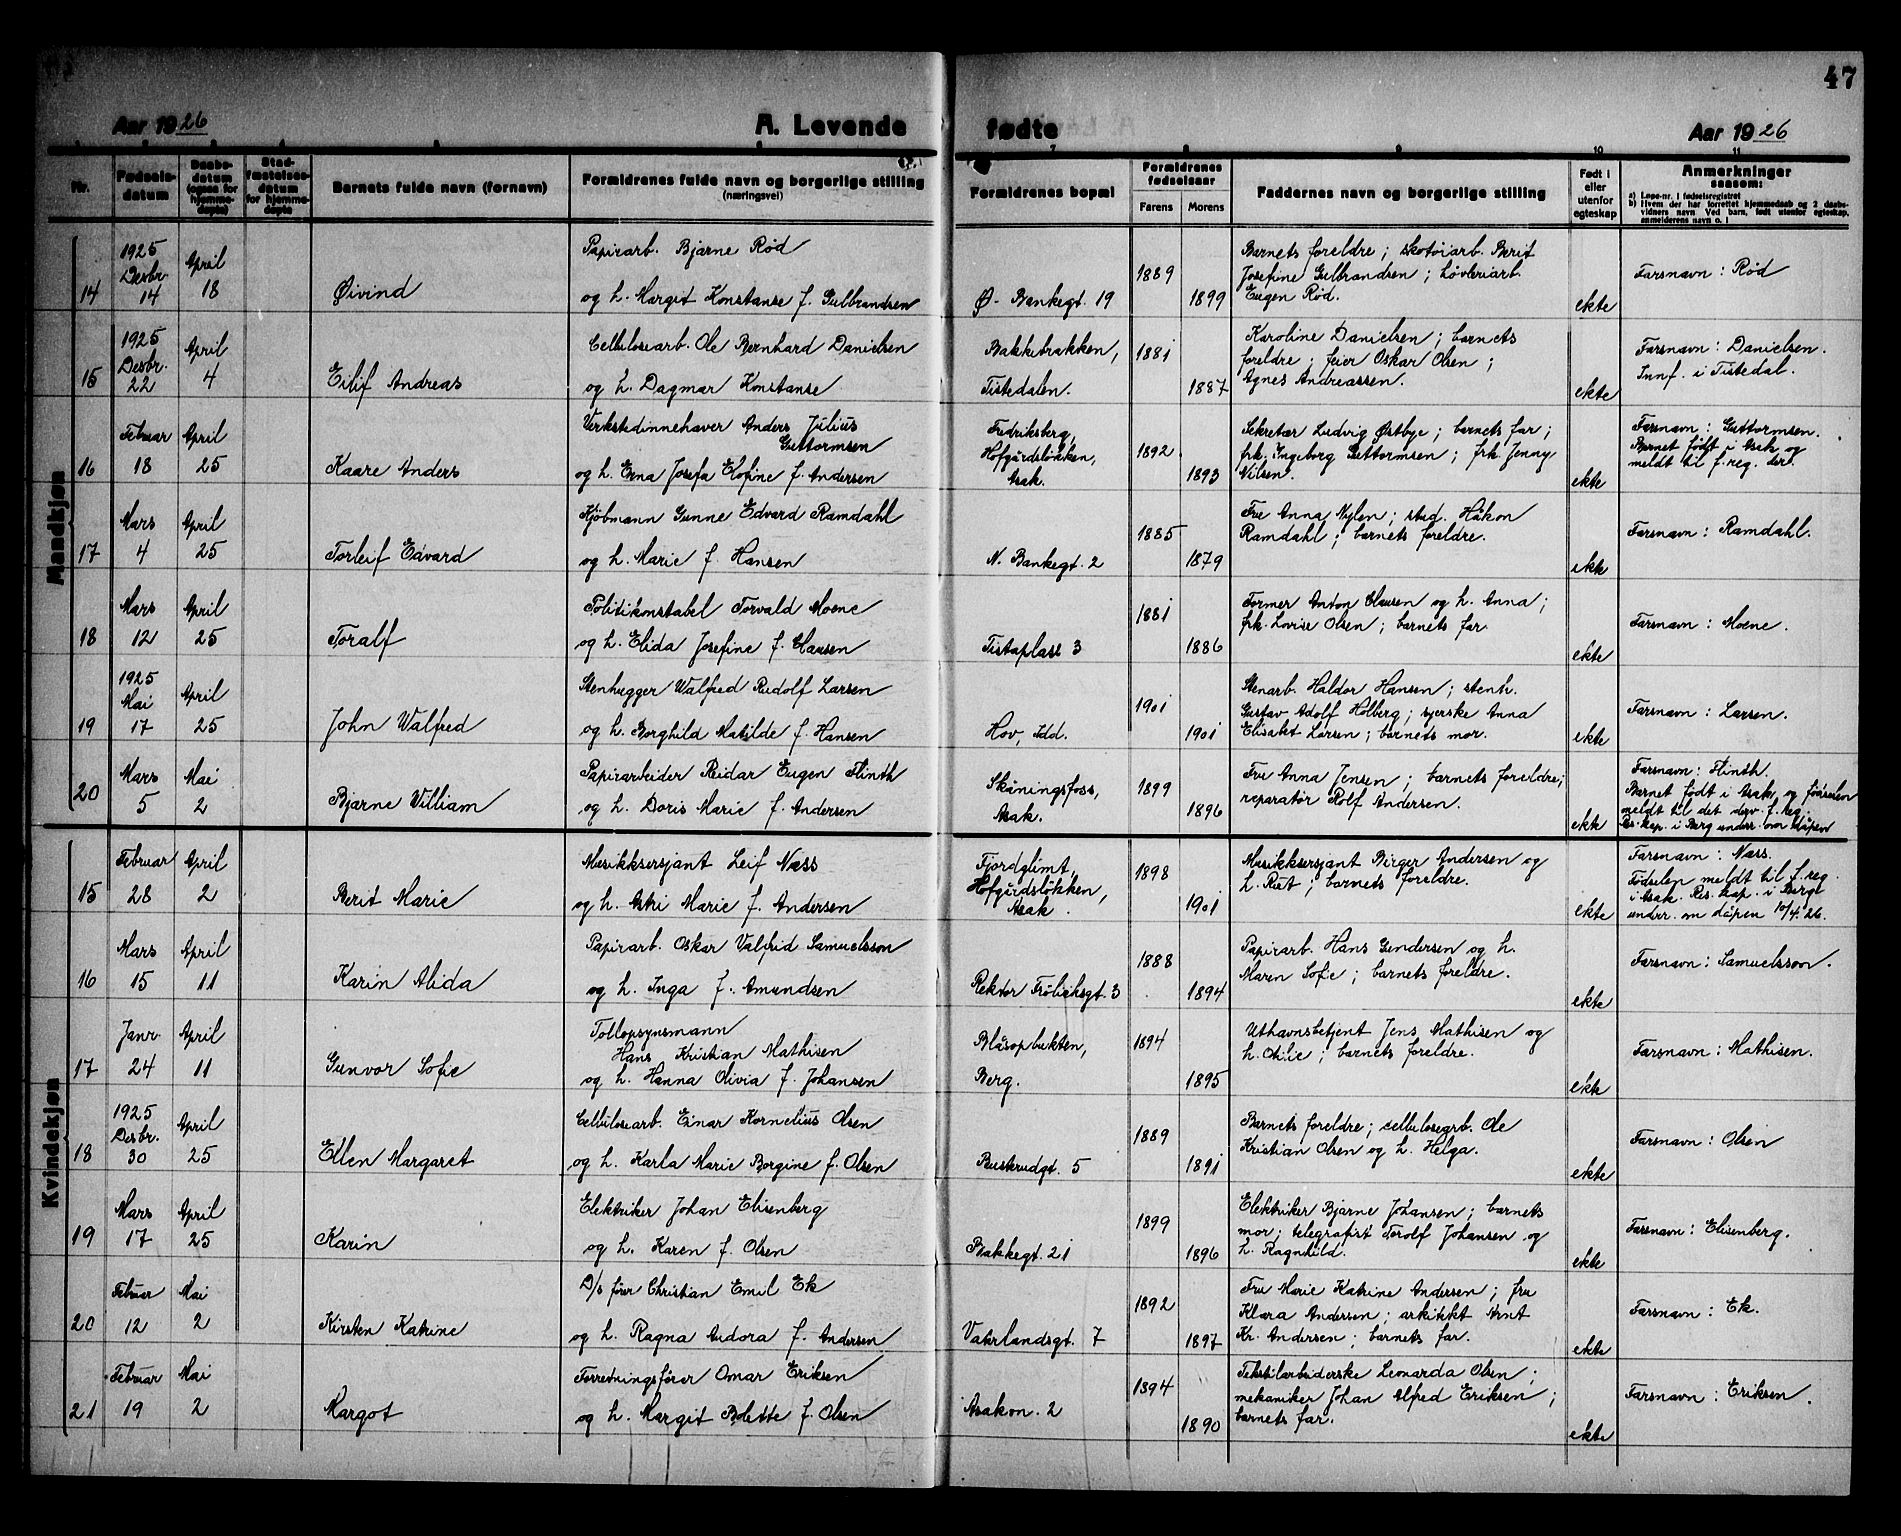 47
Aar 1926 A. Levende fødte Aar 1926
7 8 9 10 11
Nr.
Fødsels-
datum
Daabs-
datum
(ogsaa for
hjemme-
døpte)
Stad-
fæstelses-
datum
for hjemme-
døpte
Barnets fulde navn (fornavn)
Forældrenes fulde navn og borgerlige stilling
(næringsvei)
Forældrenes bopæl
Forældrenes
fødselsaar
Farens Morens
Faddernes navn og borgerlige stilling
Født i
eller
utenfor
egteskap
Anmerkninger
saasom:
a) Løpe-nr. i fødselsregistret
b) Hvem der har forrettet hjemmedaab og 2 daabs-
vidners navn Ved barn, født utenfor egteskap,
anmelderens navn o. l
Mandkjøn
14
1925
Desbr.
14
April
18
Øivind
Papirarb. Bjarne Rød
og h. Margit Konstanse f. Gulbrandsen
Ø. Bankegt. 19
1889
1899
Barnets foreldre; skotøiarb. Berit
Josefine Gulbrandsen; høvleriarb.
Eugen Rød.
ekte
Farsnavn: Rød
15
1925
Desbr.
22
April
4
Eilif Andreas
Cellulosearb. Ole Bernhard Danielsen
og h. Dagmar Konstanse
Bakkebrakken,
Tistedalen.
1881
1887
Karoline Danielsen; barnets
foreldre; feier Oskar Olsen;
Agnes Andreassen.
ekte
Farsnavn: Danielsen.
Innf. i Tistedal.
16
Februar
18
April
25
Kaare Anders
Verkstedinnehaver Anders Julius
Guttormsen
og h. Erna Josefa Elofine f. Andersen
Fredriksberg,
Hofgårdsløkken,
Asak.
1892
1893
Sekretær Ludvig Østbye; barnets far;
frk. Ingeborg Guttormsen; frk. Jenny
Nilsen.
ekte
Farsnavn: Guttormsen.
Barnet født i Asak og
meldt til f.reg. der.
17
Mars
4
April
25
Torleif Edvard
Kjøbmann Gunne Edvard Ramdahl
og h. Marie f. Hansen
N. Bankegt. 2
1885
1879
Fru Anna Nylen; stud. Håkon
Ramdahl; barnets foreldre.
ekte
Farsnavn: Ramdahl.
18
Mars
12
April
25
Toralf
Politikonstabel Torvald Moene
og h. Elida Josefine f. Clausen
Tistaplass 3
1881
1886
Former Anton Clausen og h. Anna;
frk. Lovise Olsen; barnets far.
ekte
Farsnavn: Moene.
19
1925
Mai
17
April
25
John Walfred
Stenhugger Walfred Rudolf Larsen
og h. Borghild Matilde f. Hansen
Hov, Idd.
1901
1901
Stenarb. Haldor Hansen; stenh.
Gustav Adolf Holberg; syerske Anna
Elisabet Larsen; barnets mor.
ekte
Farsnavn: Larsen.
20
Mars
5
Mai
2
Bjarne William
Papirarbeider Reidar Eugen Flinth
og h. Doris Marie f. Andersen
Skåningsfoss,
Asak.
1899
1896
Fru Anna Jensen; barnets foreldre;
reparatør Rolf Andersen.
ekte
Farsnavn: Flinth.
Barnet født i Asak og fødselen
meldt til det derv. f. reg.
Res. kap. i Berg underr. om dåpen
Kvindekjøn
15
Februar
28
April
2
Berit Marie
Musikksersjant Leif Næss
og h. Astri Marie f. Andersen
Fjordglimt,
Hofgårdsløkken,
Asak.
1898
1901
Musikksersjant Birger Andersen og
h. Rut; barnets foreldre.
ekte
Farsnavn: Næss.
Fødselen meldt til f.reg.
i Asak. Res. kap. i Berg
underr. om dåpen 10/4.26.
16
Mars
15
April
11
Karin Alida
Papirarb. Oskar Valfrid Samuelsson
og h. Inga f. Amundsen
Rektor Frölichsgt. 3
1888
1894
Papirarb. Hans Gundersen og h.
Maren Sofie; barnets foreldre.
ekte
Farsnavn: Samuelsson.
17
Janr.
24
April
11
Gunvor Sofie
Tollopsynsmann
Hans Kristian Mathisen
og h. Hanna Olivia f. Johansen
Blåsopbukten,
Berg.
1894
1895
Uthavnsbetjent Jens Mathisen og
h. Otilie; barnets foreldre.
ekte
Farsnavn: Mathisen.
18
1925
Desbr.
30
April
25
Ellen Margaret
Cellulosearb. Einar Kornelius Olsen
og h. Karla Marie Borgine f. Olsen
Buskrudgt. 5
1889
1891
Barnets foreldre; cellulosearb. Ole
Kristian Olsen og h. Helga.
ekte
Farsnavn: Olsen
19
Mars
17
April
25
Karin
Elektriker Johan Elisenberg
og h. Karen f. Olsen
Bakkegt. 21
1899
1896
Elektriker Bjarne Johansen; barnets
mor; telegrafist Torolf Johansen og
h. Ragnhild.
ekte
Farsnavn: Elisenberg.
20
Februar
12
Mai
2
Kirsten Katrine
D/s fører Christian Emil Ek
og h. Ragna Audora f. Andersen
Vaterlandsgt. 7
1892
1897
Fru Marie Katrine Andersen; fru
Klara Andersen; arkitekt Arnt
Kr. Andersen; barnets far.
ekte
Farsnavn: Ek.
21
Februar
19
Mai
2
Margot
Forretningsfører Omar Eriksen
og h. Margit Bolette f. Olsen
Asakon. 2
1894
1890
Tekstilarbeiderske Leonarda Olsen;
mekaniker Johan Alfred Eriksen;
barnets far.
ekte
Farsnavn: Eriksen.